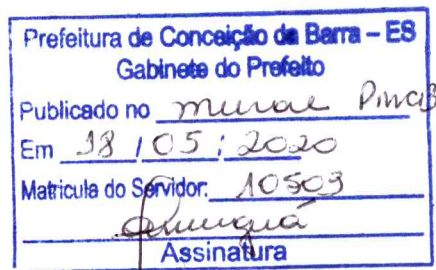 Prefeitura de Conceição da Barra – ES
Gabinete do Prefeito
Publicado no mural PMCB
Em 18 / 05 / 2020
Matricula do Servidor: 10509
Assinatura